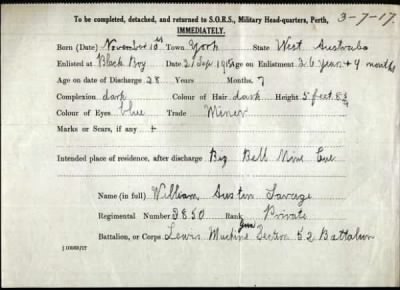 To be completed, detached, and returned to S.O.R.S., Military Head-quarters, Perth, 3-7-17.
IMMEDIATELY.
Born (Date) November 10th Town York State West Australia
Enlisted at Black Boy Date 2/Sep 1915 Age on Enlistment 26 Years + 4 months
Age on date of Discharge 28 Years Months. 7
Complexion dark Colour of Hair dark Height 5 feet
Colour of Eyes blue Trade Miner
Marks or Scars, if any +
Intended place of residence, after discharge Big Bell Mine Cue
Name (in full) William Austin Savage
Regimental Number 2850 Rank Private
Battalion, or Corps Lewis Machine Gun Section 52 Battalion